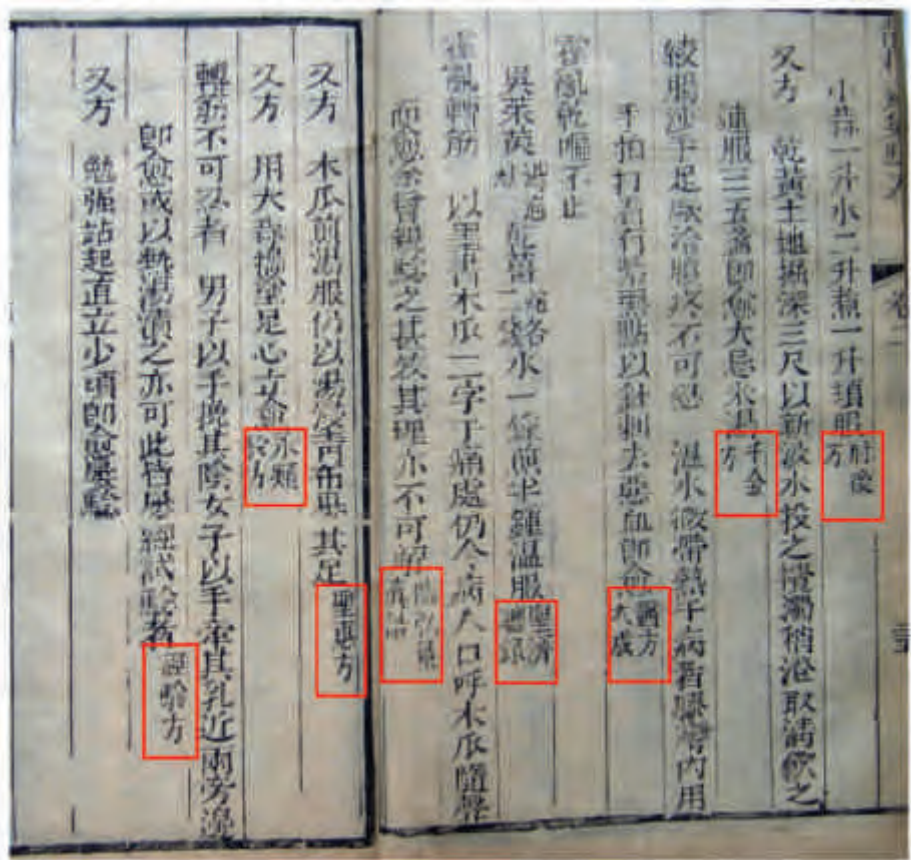 小蒜一升水二升煮一升頓服肘後方
又方 乾黃土地掘深三尺以新汲水投之攪濁稍澄取清飲之
連服三五盞即愈大忌米湯千金方
絞腸沙手足厥冷腹疼不可忍 溫水微帶熱于病者膝彎內用
手拍打有紫黑點以針刺去惡血即愈醫方大成
霍亂乾嘔不止
吳茱萸 乾薑 水一鍾煎半鍾溫服聖濟
霍亂轉筋 以里書木瓜二字于痛處仍令病人口呼木瓜隨聲
而愈余曾親驗之甚效其理亦不可解陶弘景
又方 木瓜煎湯服仍以湯浸青布裹其足聖惠方
又方 用大蒜搗塗足心立愈永類鈐方
轉筋不可忍者 男子以手挽其陰女子以手牽其乳近兩旁
即愈或以熱湯漬之亦可此皆歷經試驗者經驗方
又方 勉強站起直立少頃即愈屢驗